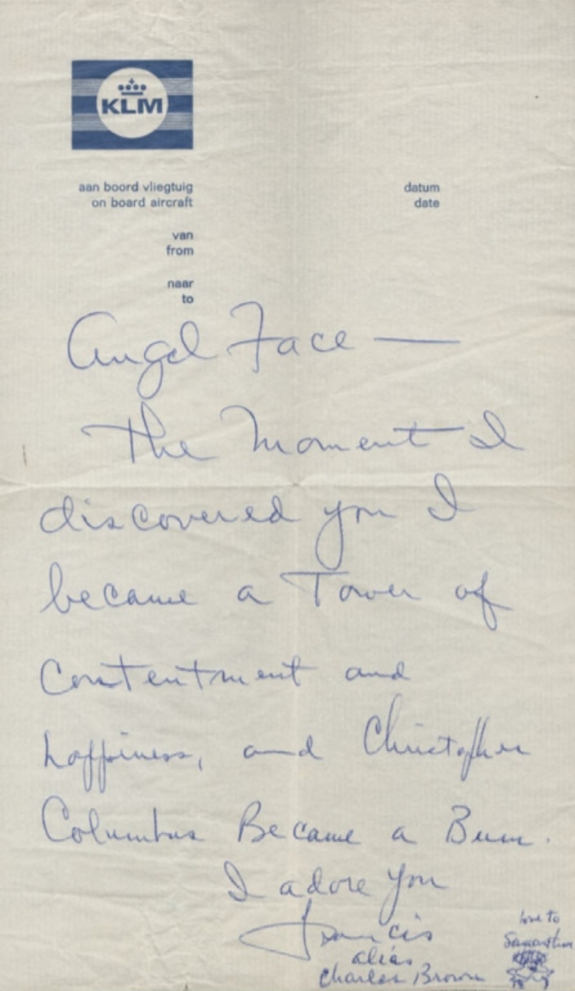 KLM
aan boord vliegtuig
on board aircraft
datum
date
van
from
naar
to
Angel Face —
The Moment I
discovered you I
became a Tower of
Contentment and
happiness, and Christopher
Columbus Became a Bum.
I adore you
Francis
alias
Charles Brown
love to
Samantha